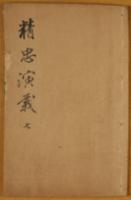 精忠演義 七